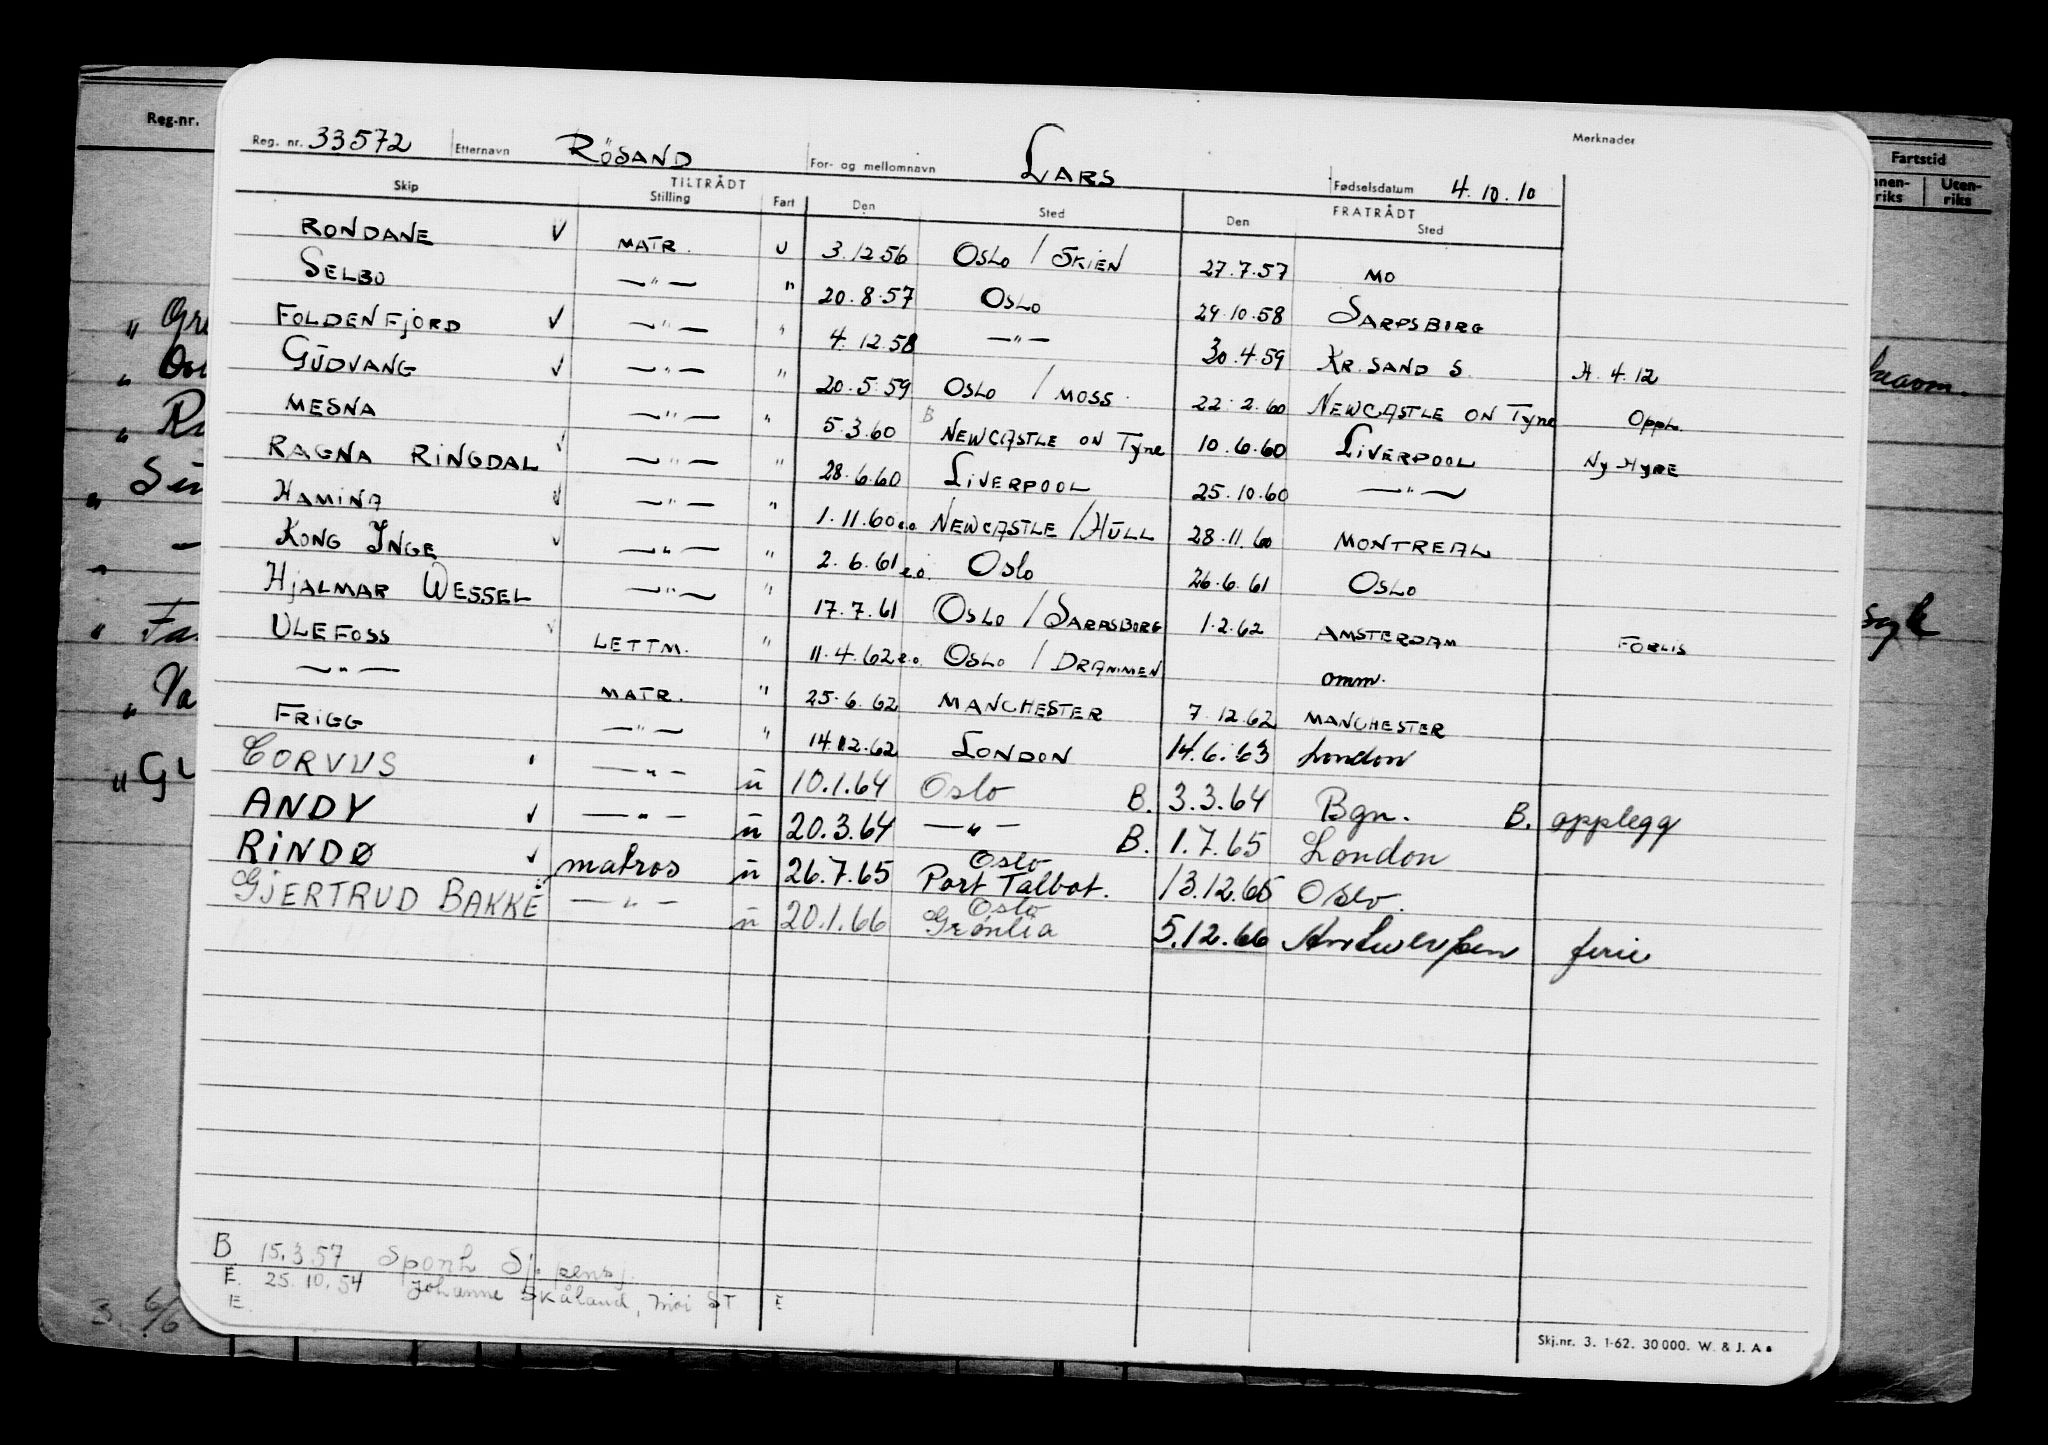 Reg.nr.
Fartstid
Uten-
riks riks
Reg. nr. 33572 Etternavn RÖSAND For- og mellomnavn LARS Fødselsdatum 4.10.10 Merknader
TILTRÅDT FRATRÅDT
Skip Stilling Fart Den Sted Den Sted
RONDANE V MATR. U 3.12.56 OSLO / SKIEN 27.7.57 MO
SELBO —"— " 20.8.57 OSLO 29.10.58 SARPSBIRG
FOLDENFJORD V —"— " 4.12.58 —"— 30.4.59 KR.SAND S. H. 4.12
GUDVANG V —"— " 20.5.59 OSLO / MOSS 22.2.60 NEWCASTLE ON TYNE Oppl.
MESNA —"— " 5.3.60 B NEWCASTLE ON TYNE 10.6.60 LIVERPOOL NY HYRE
RAGNA RINGDAL V —"— " 28.6.60 LIVERPOOL 25.10.60 —"—
HAMINA V —"— " 1.11.60 e.o. NEWCASTLE / HULL 28.11.60 MONTREAL
KONG INGE V —"— " 2.6.61 e.o. OSLO 26.6.61 OSLO
HJALMAR WESSEL —"— " 17.7.61 OSLO / SARPSBORG 1.2.62 AMSTERDAM FORLIS
ULEFOSS V LETTM. " 11.4.62 e.o. OSLO / DRAMMEN omm.
—"— MATR. " 25.6.62 MANCHESTER 7.12.62 MANCHESTER
FRIGG —"— " 14.12.62 LONDON 14.6.63 London
CORVUS —"— ü 10.1.64 Oslo B. 3.3.64 Bgn. B. opplegg
ANDY V —"— ü 20.3.64 —"— B. 1.7.65 London
RINDØ V matros ü 26.7.65 Oslo Port Talbot. 13.12.65 Oslo.
GJERTRUD BAKKE —"— ü 20.1.66 Oslo Grønlia 5.12.66 Antwerpen ferie
B 15.3.57 Sponh Sj. pensj.
E. 25.10.54 Johanne Skåland, Moi ST E
E.
Skj.nr. 3. 1-62. 30 000. W. & J. A s
syk
3. 6/6